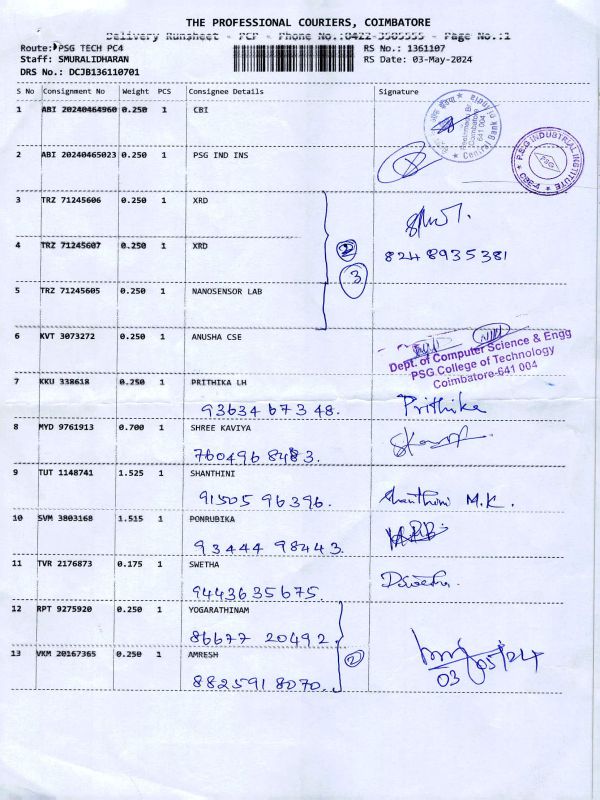 THE PROFESSIONAL COURIERS, COIMBATORE
Delivery Runsheet - PCP - Phone No.:0422-3505555 - Page No.:1
Route: PSG TECH PC4 RS No.: 1361107
Staff: SMURALIDHARAN RS Date: 03-May-2024
DRS No.: DCJB136110701
S No Consignment No Weight PCS Consignee Details Signature
1 ABI 20240464960 0.250 1 CBI
Central Bank
641 004
2 ABI 20240465023 0.250 1 PSG IND INS
P.S.G INDUSTRIAL INSTITUTE
PSG
CBE-4
3 TRZ 71245606 0.250 1 XRD
4 TRZ 71245607 0.250 1 XRD 2 8248935381
3
5 TRZ 71245605 0.250 1 NANOSENSOR LAB
6 KVT 3073272 0.250 1 ANUSHA CSE
Dept. of Computer Science & Engg
PSG College of Technology
Coimbatore-641 004
7 KKU 338618 0.250 1 PRITHIKA LH
93634 67348. Prithika
8 MYD 9761913 0.700 1 SHREE KAVIYA
760496 8483.
9 TUT 1148741 1.525 1 SHANTHINI
91505 96396. Shanthini M.K.
10 SVM 3803168 1.515 1 PONRUBIKA
93444 98443.
11 TVR 2176873 0.175 1 SWETHA
9443635675. Dswetha.
12 RPT 9275920 0.250 1 YOGARATHINAM
86677 20492.
13 VKM 20167365 0.250 1 AMRESH 2
8825918070. 03/05/24